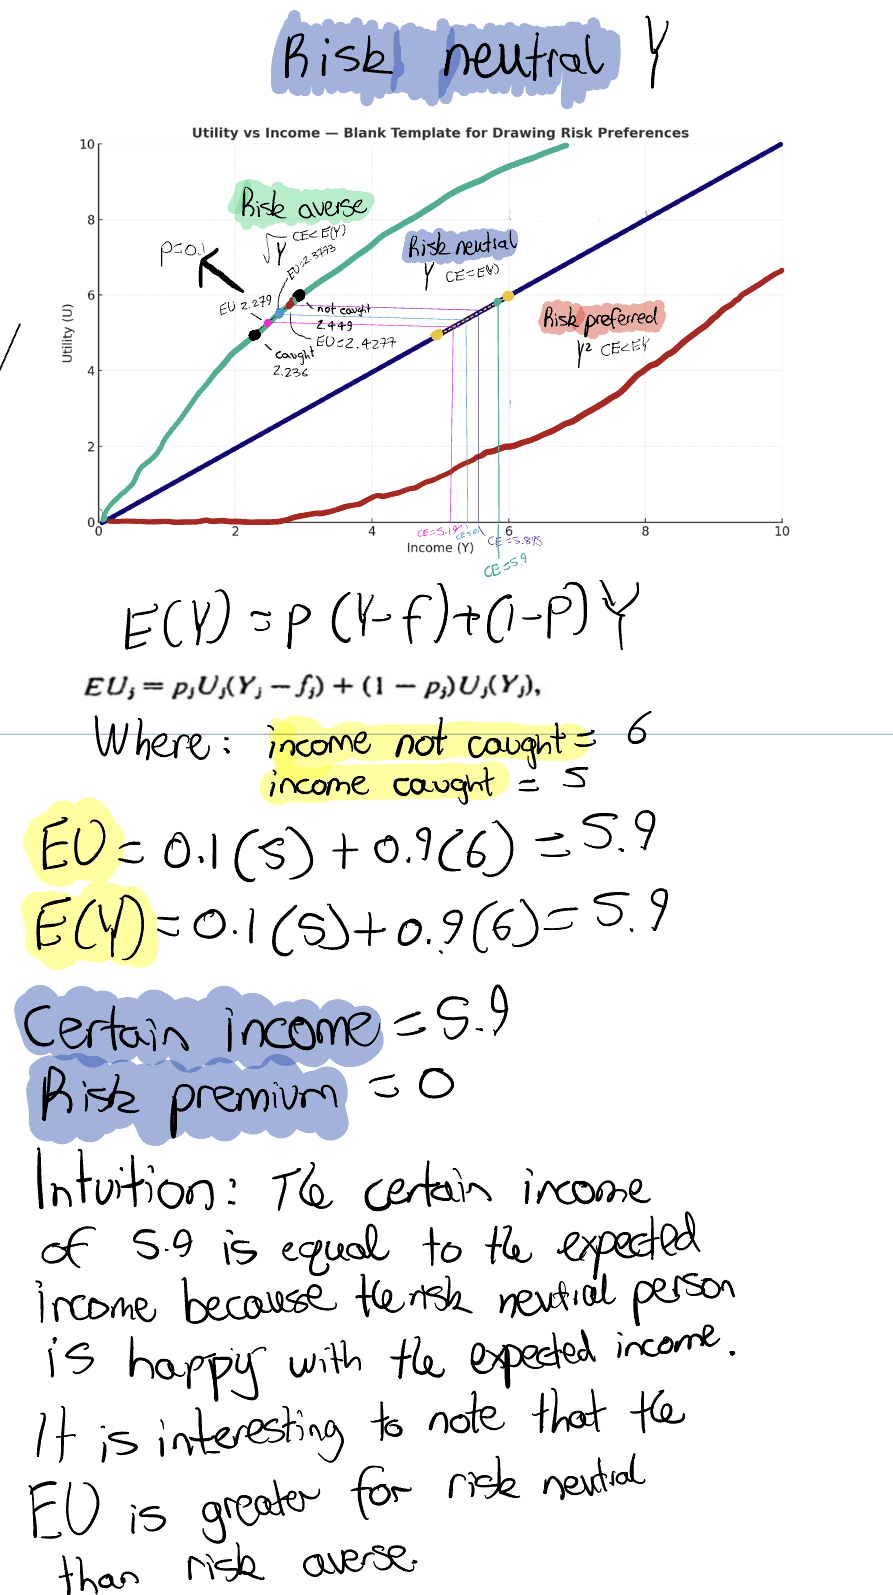 Risk neutral Y
Utility vs Income — Blank Template for Drawing Risk Preferences
10
8
6
4
2
0
Utility (U)
Risk averse
√Y CE<E(Y)
P=0.1
EU=2.3773
EU 2.279
not caught
2.449
EU=2.4277
caught
2.236
Risk neutral
Y CE=E(Y)
Risk preferred
Y² CE<EY
0 2 4 6 8 10
Income (Y)
CE=5.19
CE=5.895
CE=5.9
E(Y) = P (Y-f)+(1-P)Y
EUⱼ = pⱼUⱼ(Yⱼ − fⱼ) + (1 − pⱼ)Uⱼ(Yⱼ),
Where: income not caught = 6
income caught = 5
EU = 0.1(5) + 0.9(6) = 5.9
E(Y) = 0.1(5)+0.9(6)= 5.9
Certain income = 5.9
Risk premium = 0
Intuition: The certain income
of 5.9 is equal to the expected
income because the risk neutral person
is happy with the expected income.
It is interesting to note that the
EU is greater for risk neutral
than risk averse.